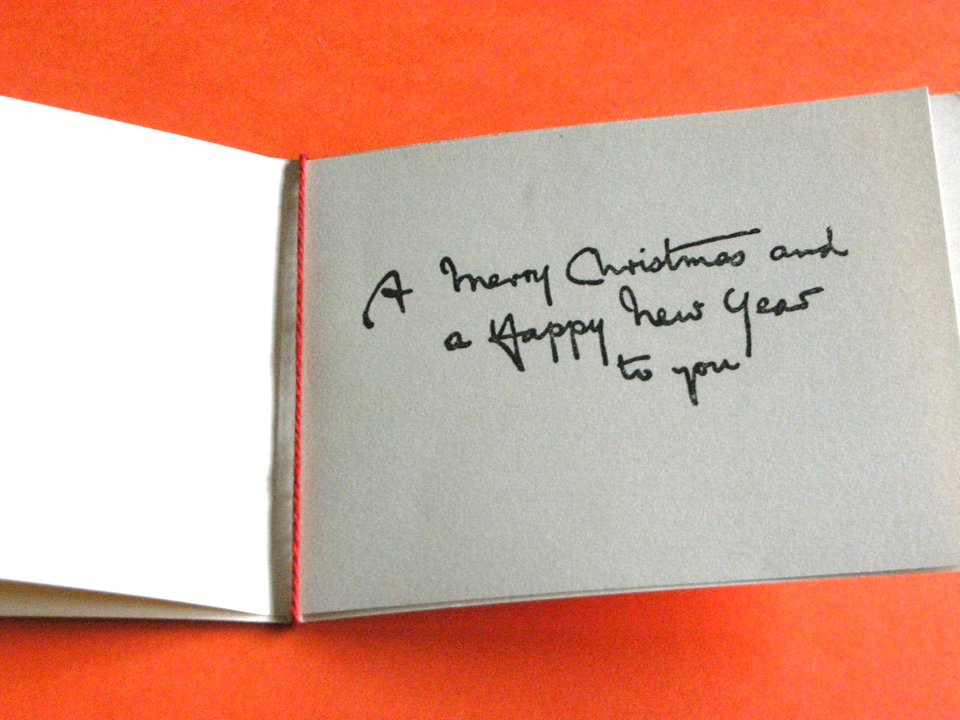 A Merry Christmas and
a Happy New Year
to you